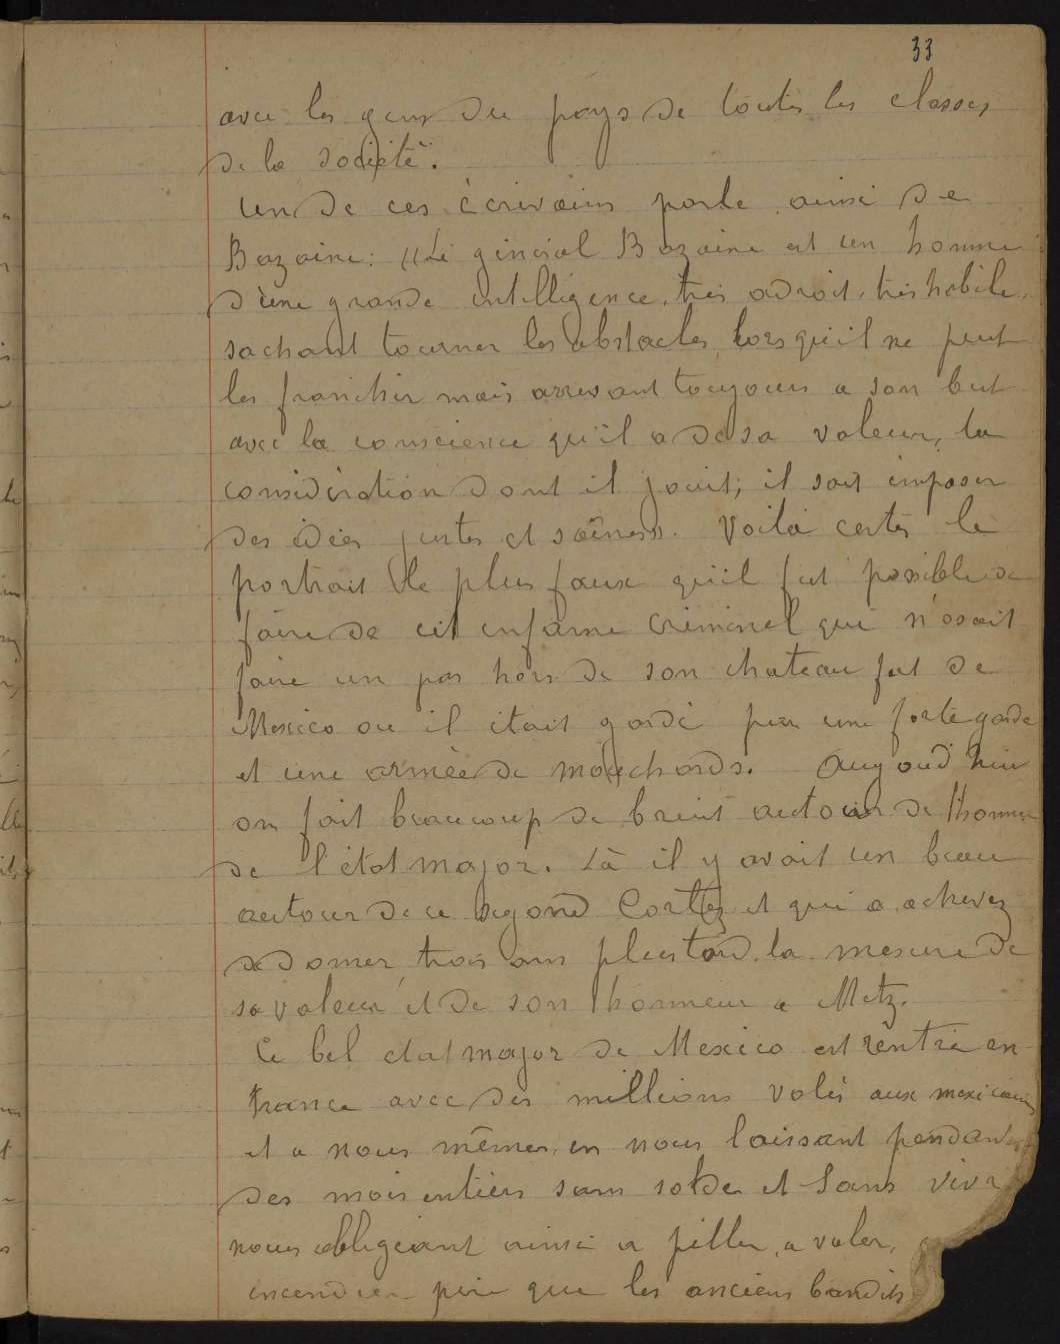 33
avec les gens du pays de toutes les classes
de la société.
un de ces écrivains parle ainsi de
Bazaine: "Le géneral Bazaine est un homme
d'une grande intelligence, très adroit, très habile,
sachant tourner les obstacles lorsqu'il ne peut
les franchir mais arrivant toujours a son but
avec la conscience qu'il a de sa valeur, la
considération dont il jouit; il sait imposer
des idées justes et saines". Voilà certes le
portrait le plus faux qu'il fut possible de
faire de cet infame criminel qui n'osait
faire un pas hors de son chateau fort de
Mexico ou il était gardé par une forte garde
et une armée de mouchards. Aujoud'hui
on fait beaucoup de bruit autour de l'honneur
de l'état major. Là il y avait un beau
autour de ce segond Cortez et qui a achevez
de donner trois ans plus tard la mesure de
sa valeur et de son honneur a Metz.
Ce bel etat major de Mexico est rentré en
France avec des millions volés aux mexicains
et a nous mêmes, en nous laissant pendant
des mois entiers sans solde et sans vivre
nous obligeant ainsi a piller, a voler,
incendier pire que les anciens bandits